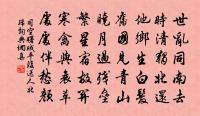 世亂同南去
時清獨北還
他鄉生白髮
舊國見青山
曉月過殘壘
繁星宿故關
寒禽與衰草
處處伴愁顏
司空曙賊平後送人北
歸詩詞典網